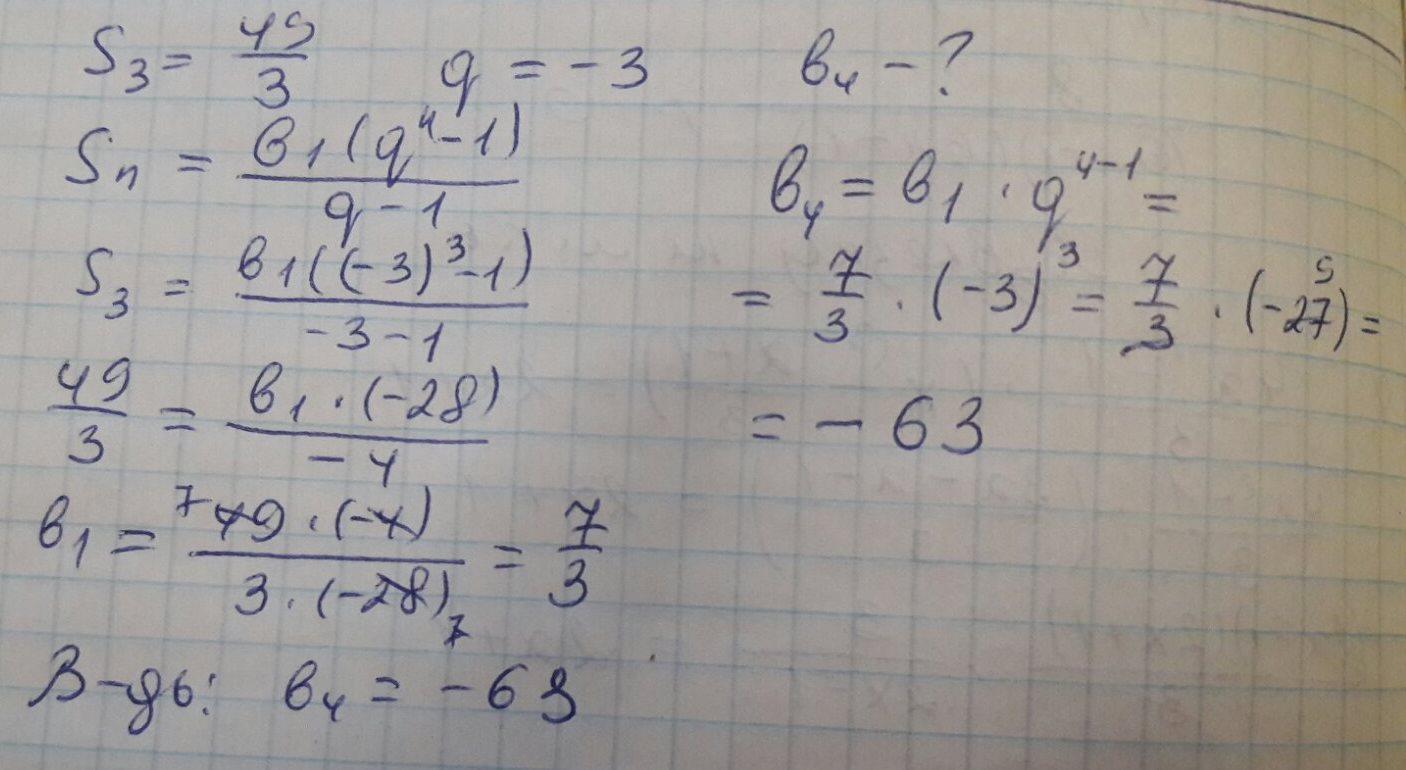 S₃ = 49/3 q = -3 в₄ - ?
Sₙ = в₁(q⁴-1)/q-1
S₃ = в₁((-3)³-1)/-3-1
49/3 = в₁·(-28)/-4
в₁ = ⁷49·(-4)/3·(-28)₇ = 7/3
в₄ = в₁·q⁴⁻¹ =
= 7/3·(-3)³ = 7/3·(-27)⁹ =
= -63
В-дь: в₄ = -63